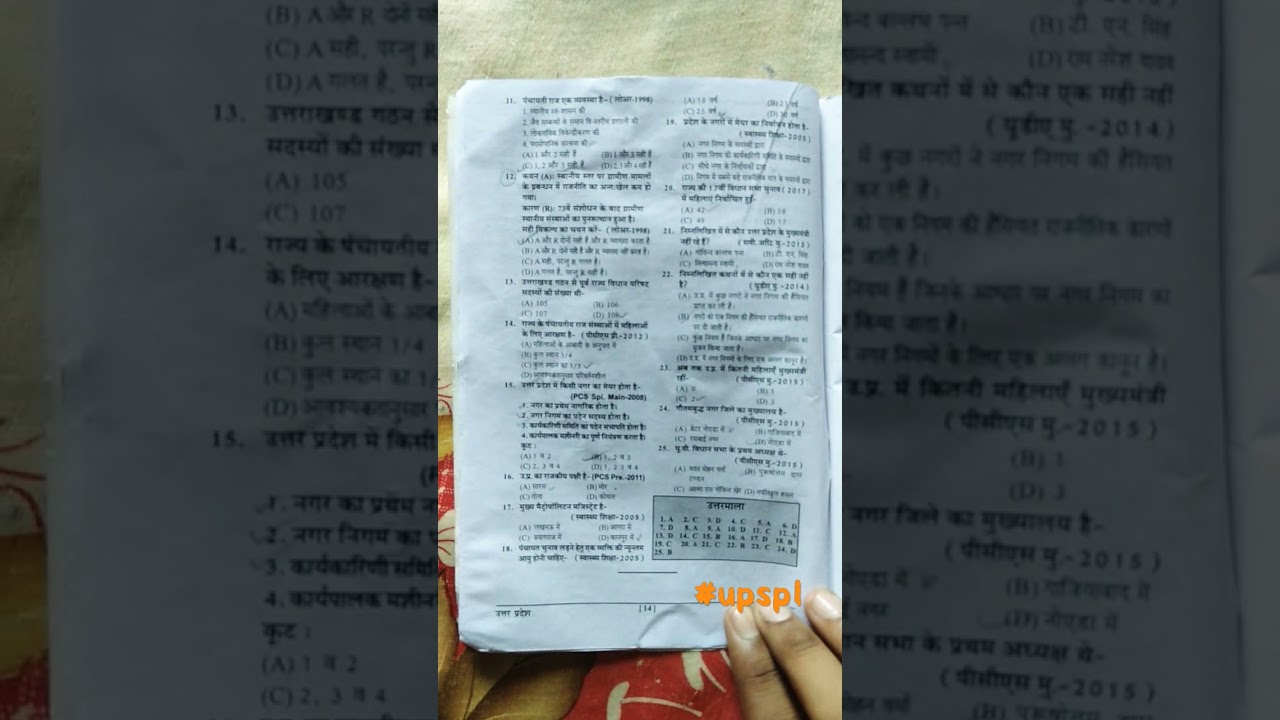 11. पंचायती राज एक व्यवस्था है- (लोअर-1998)
1. स्थानीय स्व-शासन की
3. लोकतांत्रिक विकेन्द्रीकरण की
(A) 1 और 2 सही हैं (B) 1 और 3 सही हैं
(C) 1, 2 और 3 सही हैं
12. कथन (A): स्थानीय स्तर पर ग्रामीण मामलों
के प्रबन्धन में राजनीति का अन्तःखेल कम हो
गया।
कारण (R): 73वें संशोधन के बाद ग्रामीण
स्थानीय संस्थाओं का पुनरूत्थान हुआ है।
सही विकल्प का चयन करें- (लोअर-1998)
(A) A और R दोनों सही हैं और R व्याख्या करता है
(B) A और R दोनों सही हैं और R व्याख्या नहीं करता है।
(C) A सही, परन्तु R गलत है।
(D) A गलत है, परन्तु R सही है।
13. उत्तराखण्ड गठन से पूर्व राज्य विधान परिषद
सदस्यों की संख्या थी-
(A) 105 (B) 106
(C) 107 (D) 108
14. राज्य के पंचायतीय राज संस्थाओं में महिलाओं
के लिए आरक्षण है- (पीसीएस प्री.-2012)
(A) महिलाओं के आबादी के अनुपात में
(B) कुल स्थान 1/4
(C) कुल स्थान का 1/3
(D) आवश्यकतानुसार परिवर्तनशील
15. उत्तर प्रदेश में किसी नगर का मेयर होता है-
(PCS Spl. Main-2008)
1. नगर का प्रथम नागरिक होता है।
2. नगर निगम का पदेन सदस्य होता है।
3. कार्यकारिणी समिति का पदेन सभापति होता है।
4. कार्यपालक मशीनरी का पूर्ण नियंत्रण करता है।
कूट :
(A) 1 व 2 (B) 1, 2 व 3
(C) 2, 3 व 4 (D) 1, 2 3 व 4
16. उ.प्र. का राजकीय पक्षी है- (PCS Pre.-2011)
(A) सारस (B) मोर
(C) तोता (D) कोयल
17. मुख्य मैट्रोपॉलिटन मजिस्ट्रेट है-
(स्वास्थ्य शिक्षा-2005)
(A) लखनऊ में (B) आगरा में
(C) प्रयागराज में (D) कानपुर में
18. पंचायत चुनाव लड़ने हेतु एक व्यक्ति की न्यूनतम
आयु होनी चाहिए- (स्वास्थ्य शिक्षा-2005)
(A) 18 वर्ष (B) 21 वर्ष
(C) 25 वर्ष (D) 30 वर्ष
19. प्रदेश के नगरों में मेयर का निर्वाचन होता है-
(स्वास्थ्य शिक्षा-2005)
(A) नगर निगम के सदस्यों द्वारा
(B) नगर निगम की कार्यकारिणी समिति के सदस्यों द्वारा
(C) सीधे नगर के निर्वाचकों द्वारा
(D) निगम में सबसे बड़े राजनीतिक दल के सदस्यों द्वारा
20. राज्य की 17वीं विधान सभा चुनाव (2017)
में महिलाएं निर्वाचित हुईं-
(A) 42 (B) 58
(C) 49
21. निम्नलिखित में से कौन उत्तर प्रदेश के मुख्यमंत्री
नहीं रहे हैं?
(A) गोविन्द बल्लभ पन्त (B) टी. एन. सिंह
(D) राम नरेश यादव
22. निम्नलिखित कथनों में से कौन एक सही नहीं
है? (यूडीए मु.-2014)
(A) उ.प्र. में कुछ नगरों ने नगर निगम की हैसियत
प्राप्त कर ली है।
(B) नगरों को एक निगम की हैसियत राजनीतिक कारणों
पर दी जाती है।
(C) कुछ नियम हैं जिनके आधार पर नगर निगम का
सृजन किया जाता है।
(D) उ.प्र. में नगर निगमों के लिए एक अलग कानून है।
23. अब तक उ.प्र. में कितनी महिलाएँ मुख्यमंत्री
रहीं- (पीसीएस मु.-2015)
(A) 0 (B) 1
(C) 2 (D) 3
24. गौतमबुद्ध नगर जिले का मुख्यालय है-
(पीसीएस मु.-2015)
(A) ग्रेटर नोएडा में (B) गाजियाबाद में
(D) नोएडा में
25. यू.पी. विधान सभा के प्रथम अध्यक्ष थे-
(पीसीएस मु.-2015)
(A) मदन मोहन वर्मा (B) पुरूषोत्तम दास
टण्डन
उत्तरमाला
1. A 2. C 3. D 4. C 5. A 6. D
7. D 8. A 9. A 10. D 11. C 12. A
13. D 14. C 15. B 16. A 17. D 18. B
19. C 20. A 21. C 22. B 23. C 24. D
25. B
उत्तर प्रदेश [14]
#upspl